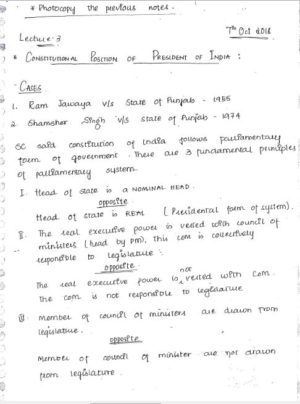 * Photocopy the previous notes.
7th Oct 2018
Lecture - 3
* CONSTITUTIONAL POSITION OF PRESIDENT OF INDIA :
CASES
1. Ram Jawaya v/s State of Punjab - 1955
2. Shamsher Singh v/s state of Punjab - 1974
SC said constitution of India follows parliamentary
form of government. There are 3 fundamental principles
of parliamentary system
I. Head of state is a NOMINAL HEAD.
opposite
Head of state is REAL (Presidental form of system).
II. The real executive power is vested with council of
ministers (head by PM), this com is collectively
responsible to legislature.
opposite
The real executive power is not vested with com.
the com is not responsible to legislature
III. member of council of ministers are drawn from
legislature.
opposite
Member of council of minister are not drawn
from legislature.